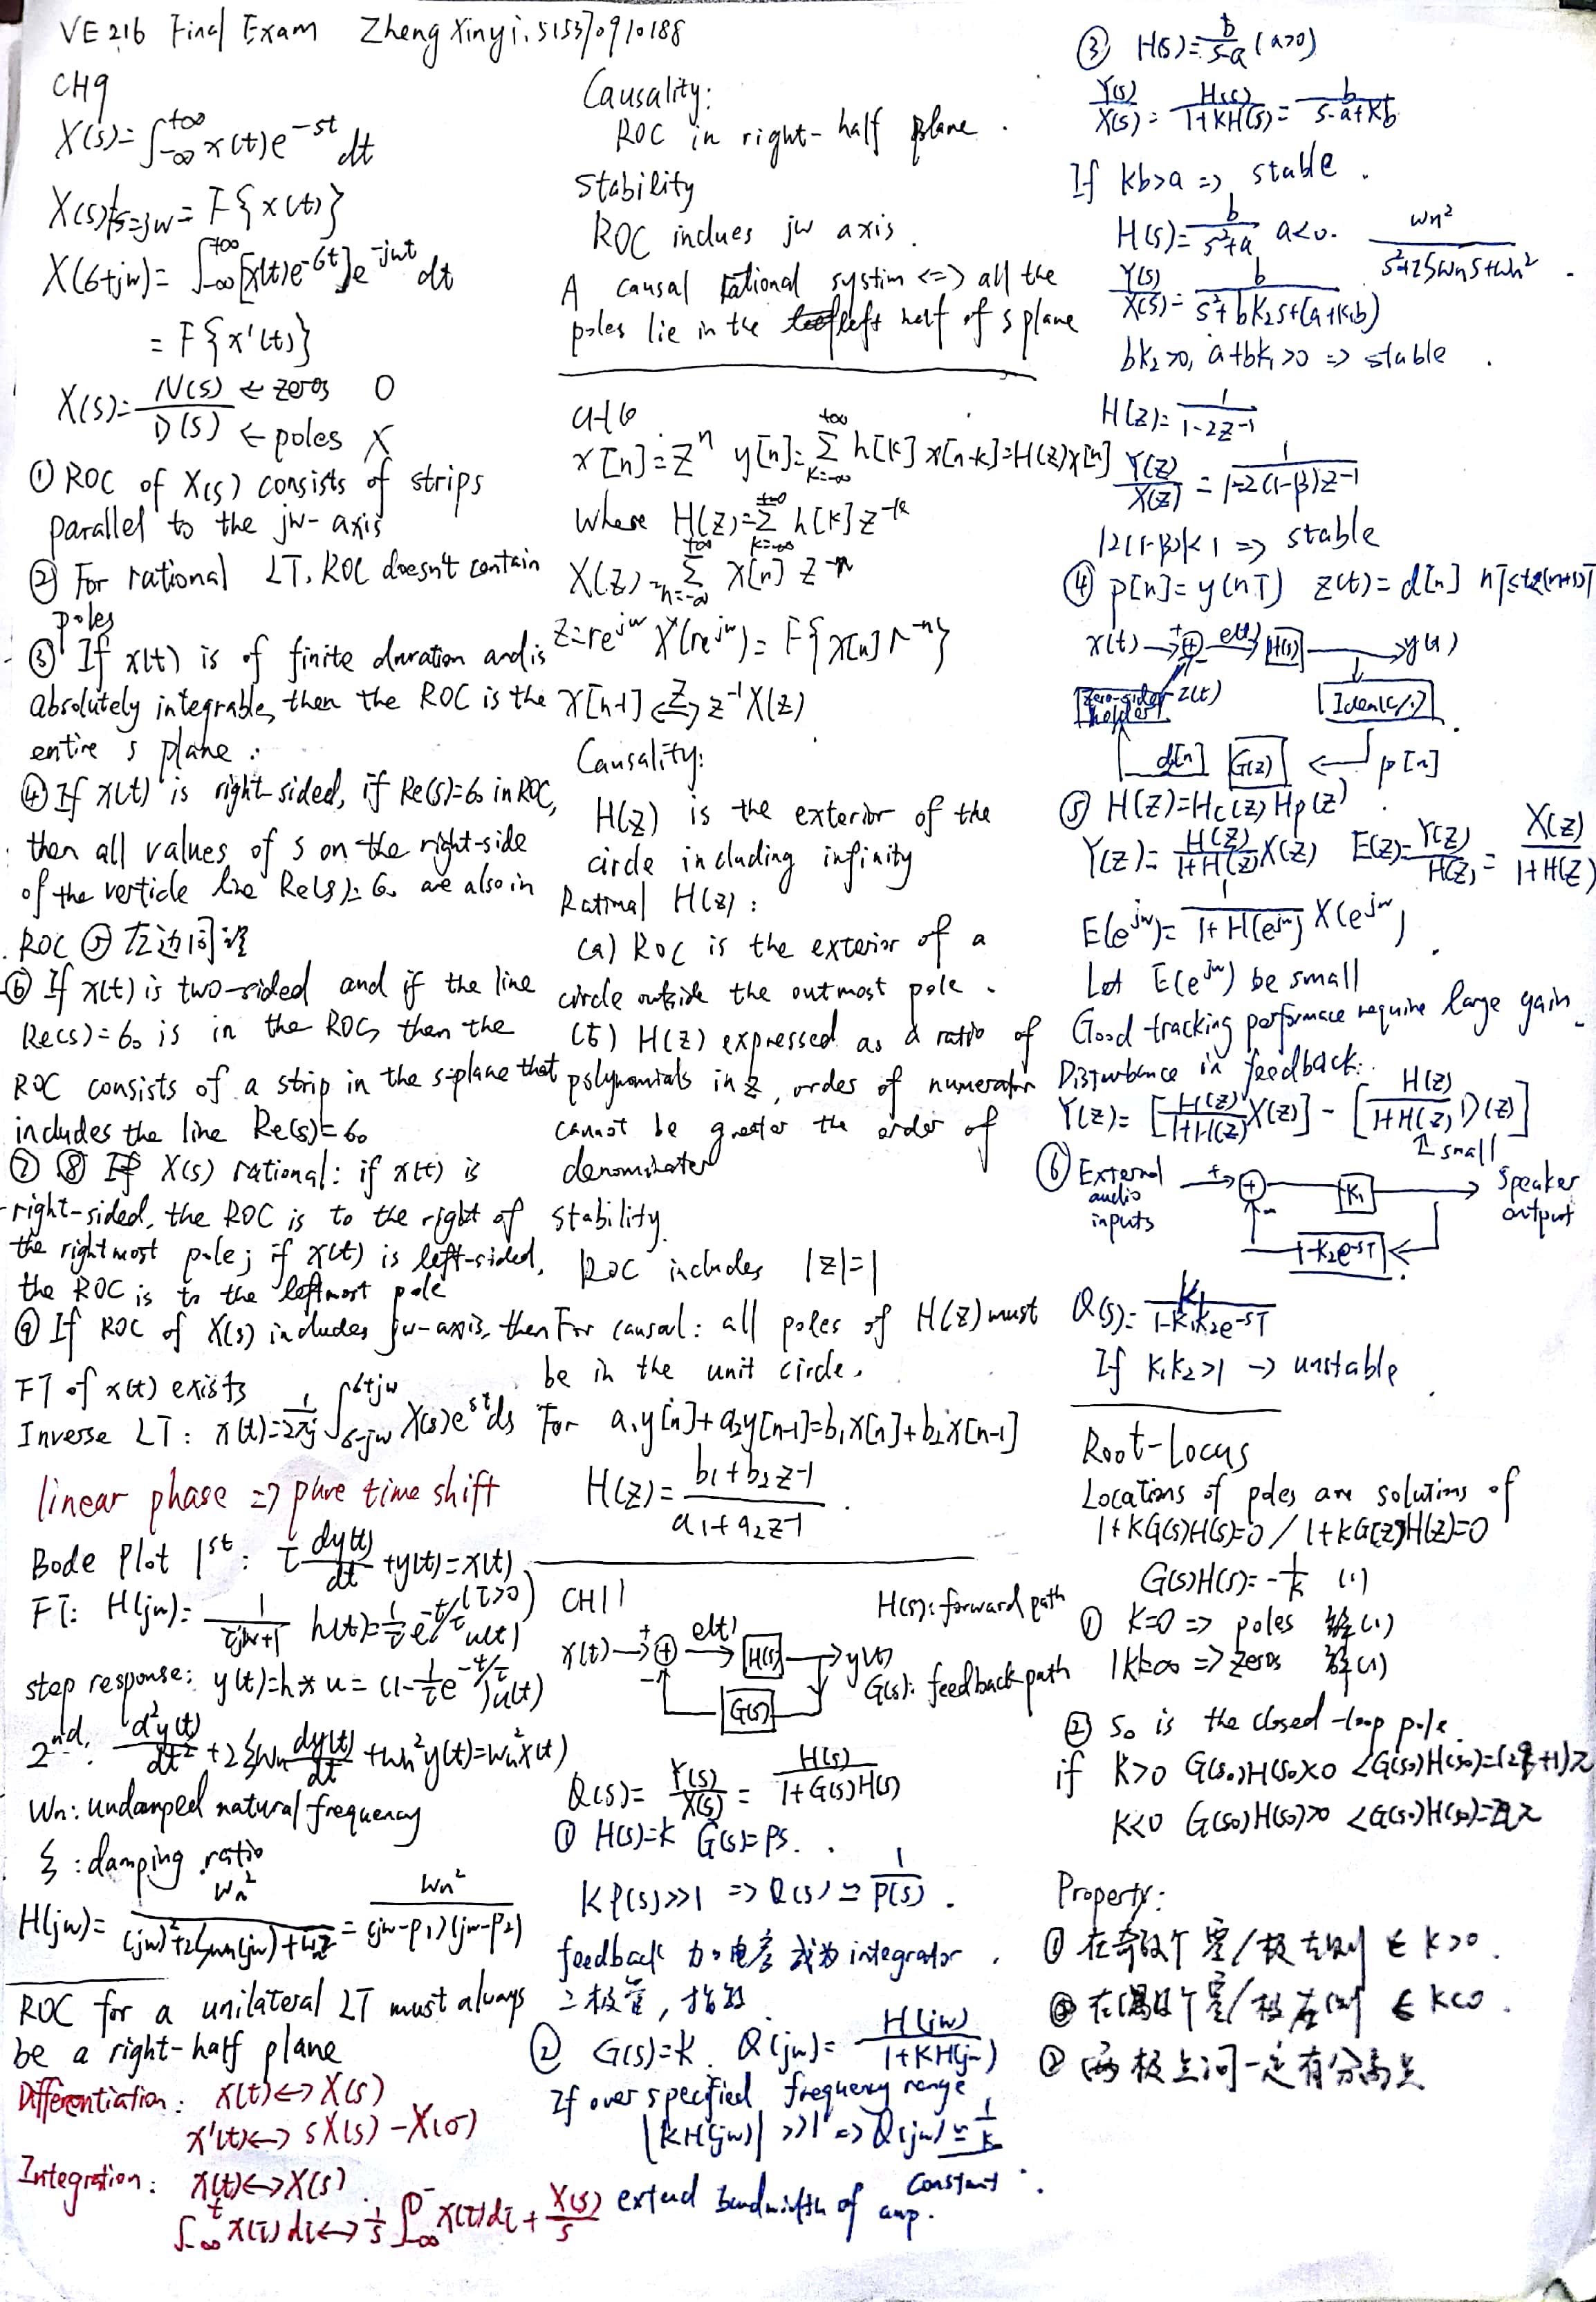 VE216 Final Exam Zheng Xinyi. 515370910188
CH9
X(s)=∫_{-∞}^{+∞} x(t)e^{-st} dt
X(s)|s=jw = F{x(t)}
X(6+jw)=∫_{-∞}^{+∞}[x(t)e^{-6t}]e^{-jwt} dt
= F{x'(t)}
X(s)= N(s)/D(s) ← zeros O
← poles X
① ROC of X(s) consists of strips
parallel to the jw-axis
② For rational LT, ROC doesn't contain
poles
③ If x(t) is of finite duration and is
absolutely integrable, then the ROC is the
entire s plane.
④ If x(t) is right-sided, if Re(s)=6o in ROC,
then all values of s on the right-side
of the verticle line Re(s)=6o are also in
ROC ⑤ 左边同理
⑥ If x(t) is two-sided and if the line
Re(s)=6o is in the ROC, then the
ROC consists of a strip in the s-plane that
includes the line Re(s)=6o
⑦ ⑧ If X(s) rational: if x(t) is
right-sided, the ROC is to the right of
the rightmost pole; if x(t) is left-sided,
the ROC is to the leftmost pole
⑨ If ROC of X(s) includes jw-axis, then
FT of x(t) exists
Inverse LT: x(t)=1/2πj ∫_{6-jw}^{6+jw} X(s)e^{st}ds
linear phase => pure time shift
Bode Plot 1st: τ dy(t)/dt +y(t)=x(t) (τ>0)
FT: H(jw)= 1/(τjw+1) h(t)=1/τ e^{-t/τ}u(t)
step response: y(t)=h*u=(1-1/τ e^{-t/τ})u(t)
2nd: d²y(t)/dt² +2ξwn dy(t)/dt +wn²y(t)=wn²x(t)
Wn: undamped natural frequency
ξ: damping ratio
H(jw)= wn²/((jw)²+2ξwn(jw)+wn²) = wn²/((jw-p1)(jw-p2))
ROC for a unilateral LT must always
be a right-half plane
Differentiation: x(t)↔X(s)
x'(t)↔sX(s)-X(0⁻)
Integration: x(t)↔X(s)
∫_{-∞}^{t} x(τ)dτ↔1/s ∫_{-∞}^{0⁻} x(τ)dτ + X(s)/s
Causality:
ROC in right-half plane.
Stability
ROC inclues jw axis.
A causal rational systim <=> all the
poles lie in the left half of s plane
CH10
x[n]=z^n y[n]=∑_{k=-∞}^{+∞} h[k]x[n-k]=H(z)x[n]
Where H(z)=∑_{k=-∞}^{+∞} h[k]z^{-k}
X(z)=∑_{n=-∞}^{+∞} x[n]z^{-n}
z=re^{jw} X(re^{jw})=F{x[n]r^{-n}}
x[n-1] ↔Z z^{-1}X(z)
Causality:
H(z) is the exterior of the
circle including infinity
Rational H(z):
(a) ROC is the exterior of a
circle outside the outmost pole.
(b) H(z) expressed as a ratio of
polynomials in z, order of numerator
cannot be greater the order of
denominator
stability.
ROC includes |z|=1
For causal: all poles of H(z) must
be in the unit circle.
For a1y[n]+a2y[n-1]=b1x[n]+b2x[n-1]
H(z)= (b1+b2z-1)/(a1+a2z-1)
CH11 H(s): forward path
x(t) + e(t) H(s) y(t)
- G(s) G(s): feedback path
Q(s)= Y(s)/X(s) = H(s)/(1+G(s)H(s))
① H(s)=k G(s)=ps.
Kp(s)>>1 => Q(s)≃1/P(s).
feedback 加电容 成为integrator.
二极管, 指数
② G(s)=k. Q(jw)= H(jw)/(1+KH(jw))
If over specified frequency range
|KH(jw)|>>1 => Q(jw)≃1/k
constant.
extend bandwidth of amp.
③ H(s)= b/(s-a) (a>0)
Y(s)/X(s) = H(s)/(1+KH(s)) = b/(s-a+Kb)
If Kb>a => stable.
H(s)= b/(s²+a) a<0. wn²/(s²+2ξwns+wn²)
Y(s)/X(s) = b/(s²+bK2s+(a+K1b))
bk2>0, a+bk1>0 => stable.
H(z)= 1/(1-2z^{-1})
Y(z)/X(z) = 1/(1-2(1-β)z^{-1})
|2(1-β)|<1 => stable
④ p[n]=y(nT) z(t)=d[n] nT≤t<(n+1)T
x(t) + e(t) H(s) y(t)
- zero-order holder z(t) Ideal C/D
d[n] G(z) p[n]
⑤ H(z)=Hc(z)Hp(z)
Y(z)= H(z)/(1+H(z)) X(z) E(z)= Y(z)/H(z) = X(z)/(1+H(z))
E(e^{jw})= 1/(1+H(e^{jw})) X(e^{jw})
Let E(e^{jw}) be small
Good tracking performace require large gain.
Disturbance in feedback:
Y(z)= [H(z)/(1+H(z)) X(z)] - [H(z)/(1+H(z)) D(z)]
↑ small
⑥ External audio inputs + K1 Speaker output
- -K2e^{-sT}
Q(s)= K1/(1-K1K2e^{-sT})
If K1K2>1 → unstable.
Root-Locus
Locations of poles are solutions of
1+KG(s)H(s)=0 / 1+KG(z)H(z)=0
G(s)H(s)=-1/k (1)
① K=0 => poles 解(1)
|K|=∞ => zeros 解(1)
② so is the closed-loop pole.
if K>0 G(so)H(so)<0 ∠G(so)H(so)=(2k+1)π
K<0 G(so)H(so)>0 ∠G(so)H(so)=2kπ
Property:
① 在奇数个零/极左侧 ∈ K>0.
② 在偶数个零/极左侧 ∈ K<0.
② 两极点间一定有分离点